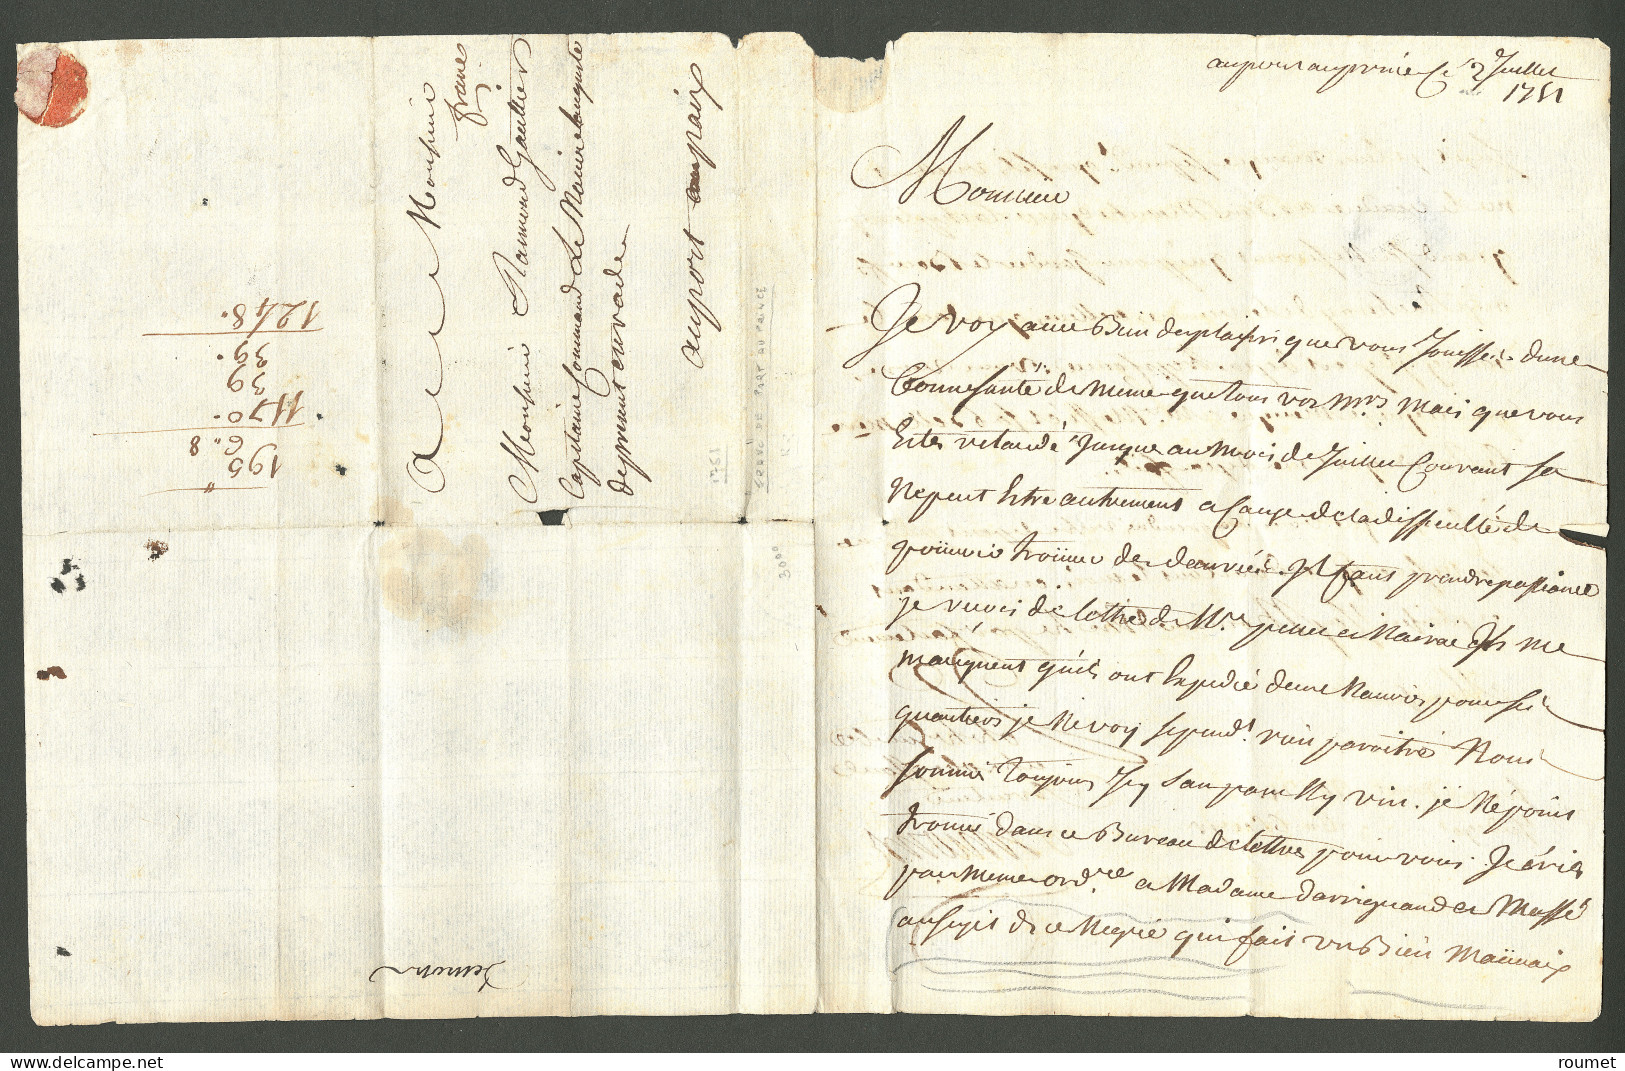 auportauprince Ce 2 Juillet
1751
Monsieur
Je voy avec Bien du plaisir que vous Jouissez dune
Bonne santé de meme que tous vos mrs mais que vous
Estes retardé Jusque au mois de Juillet Courant sa
ne peut Estre autrement a Cause de la difficulté de
pouuoir trouuer des denrées. Il faut prendre passiance
je reçois de lettre de Mrs
et Nairac Ils me
marquent quils ont Expedié deux Nauires pour ses
quartiers je ne voy sepandt. rien paroitre Nous
sommes toujours Icy sans pain Ny vin. je Népoint
trouué dans ce Bureau de lettres pour vous. Je écris
par meme ordre a Madame darriguand et Massé
au sujet de ce Negre qui fait un Bien mauuaix
A Monsieur
Monsieur Raimond Gaultier
Capitaine Command Le Navire Lauguste
depresent en rade
auport aupaix
france
1751
GRAVE DE PORT AU PRINCE
3000
195
6. 8
1170.
39
39.
1248.
delcampe.net
roumet